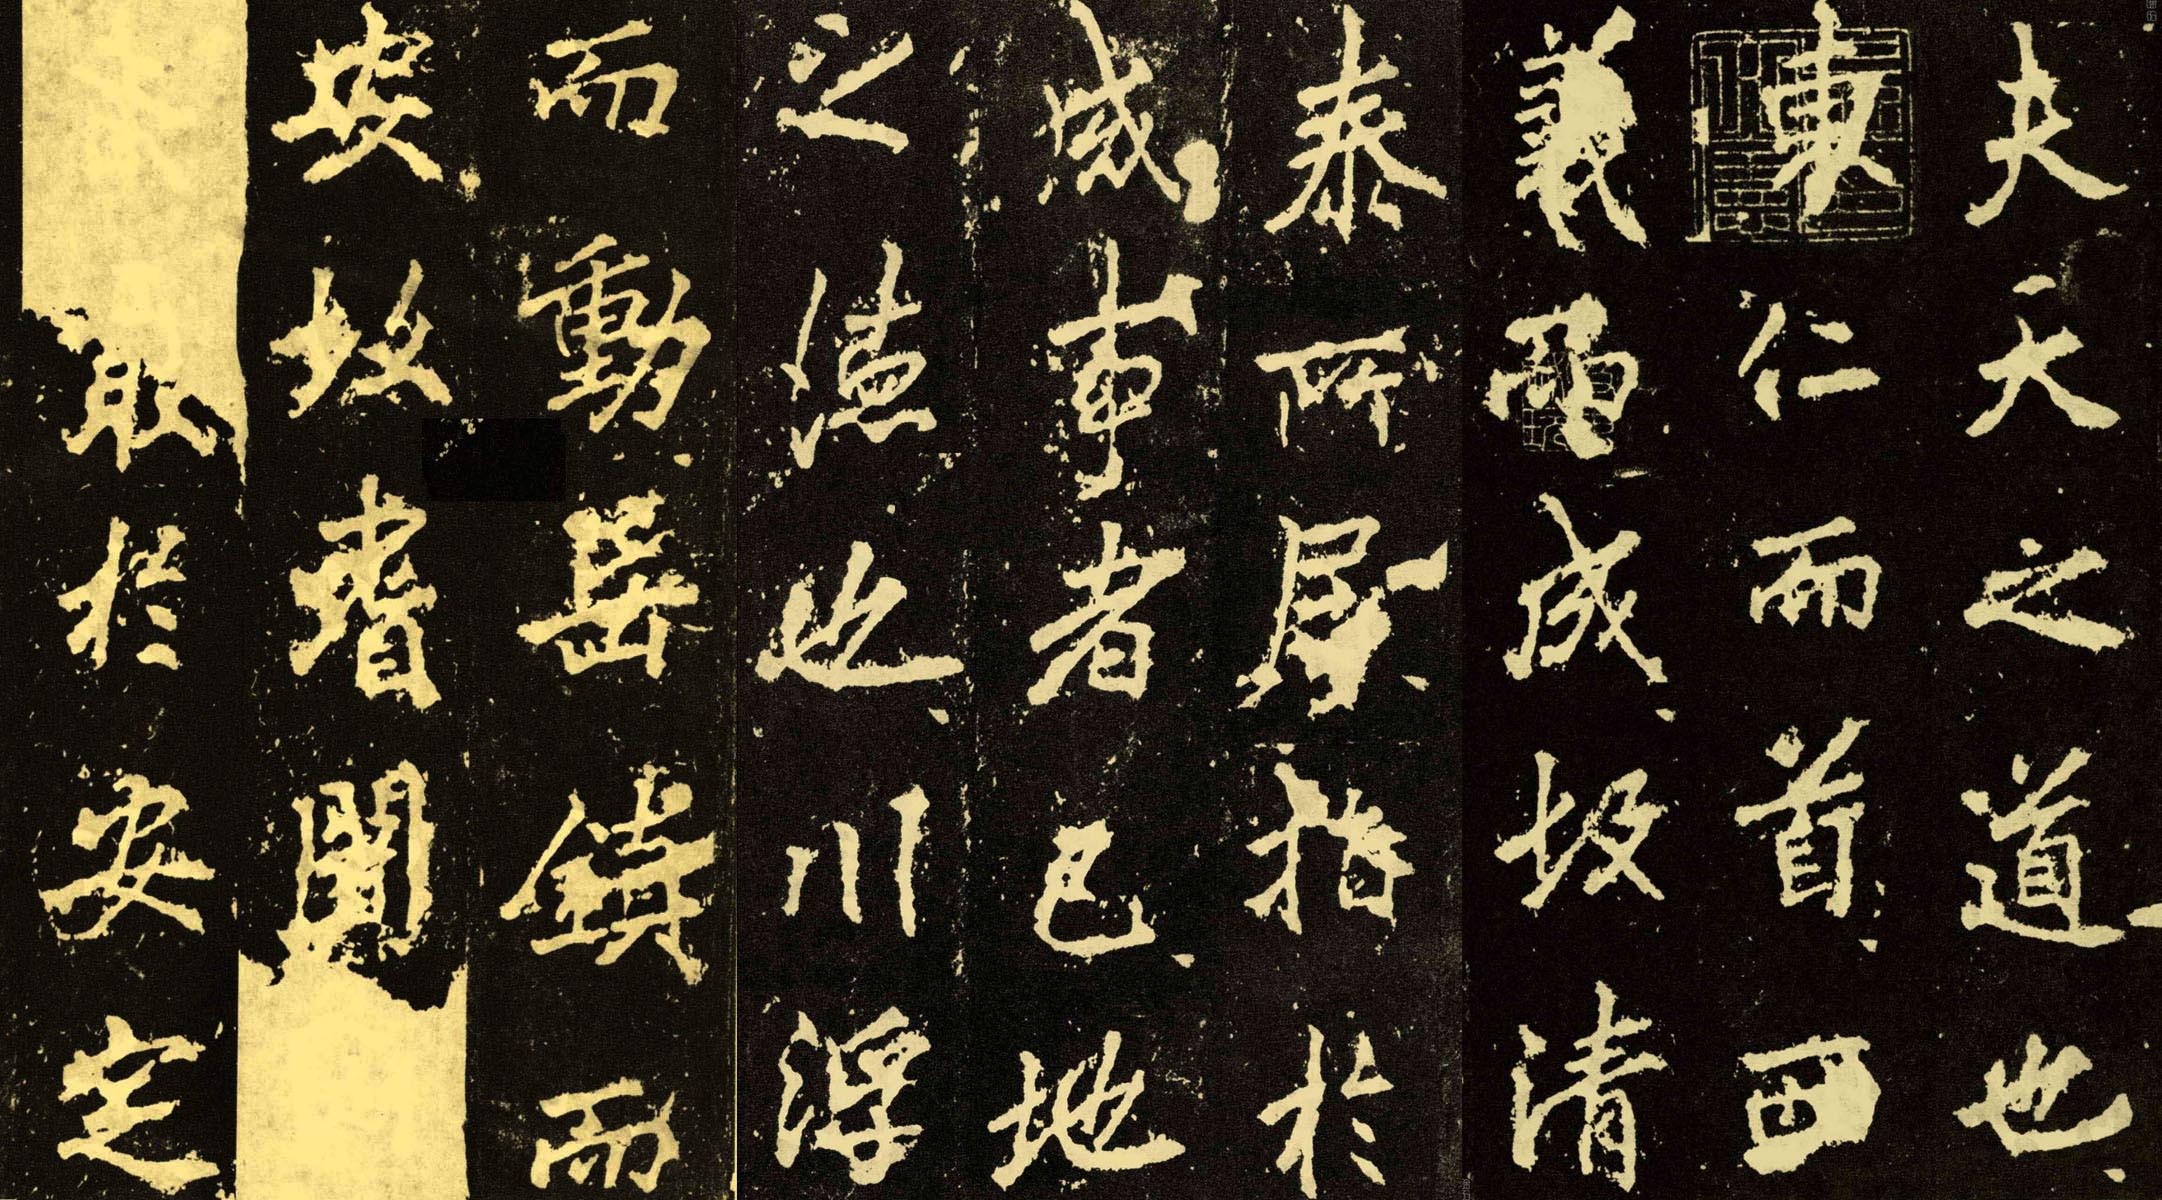 夫天之道也
東仁而首西
義而成故清
泰所屬指於
成事者已地
之德也川浮
而動岳鎮而
安故耆闍
取於安定